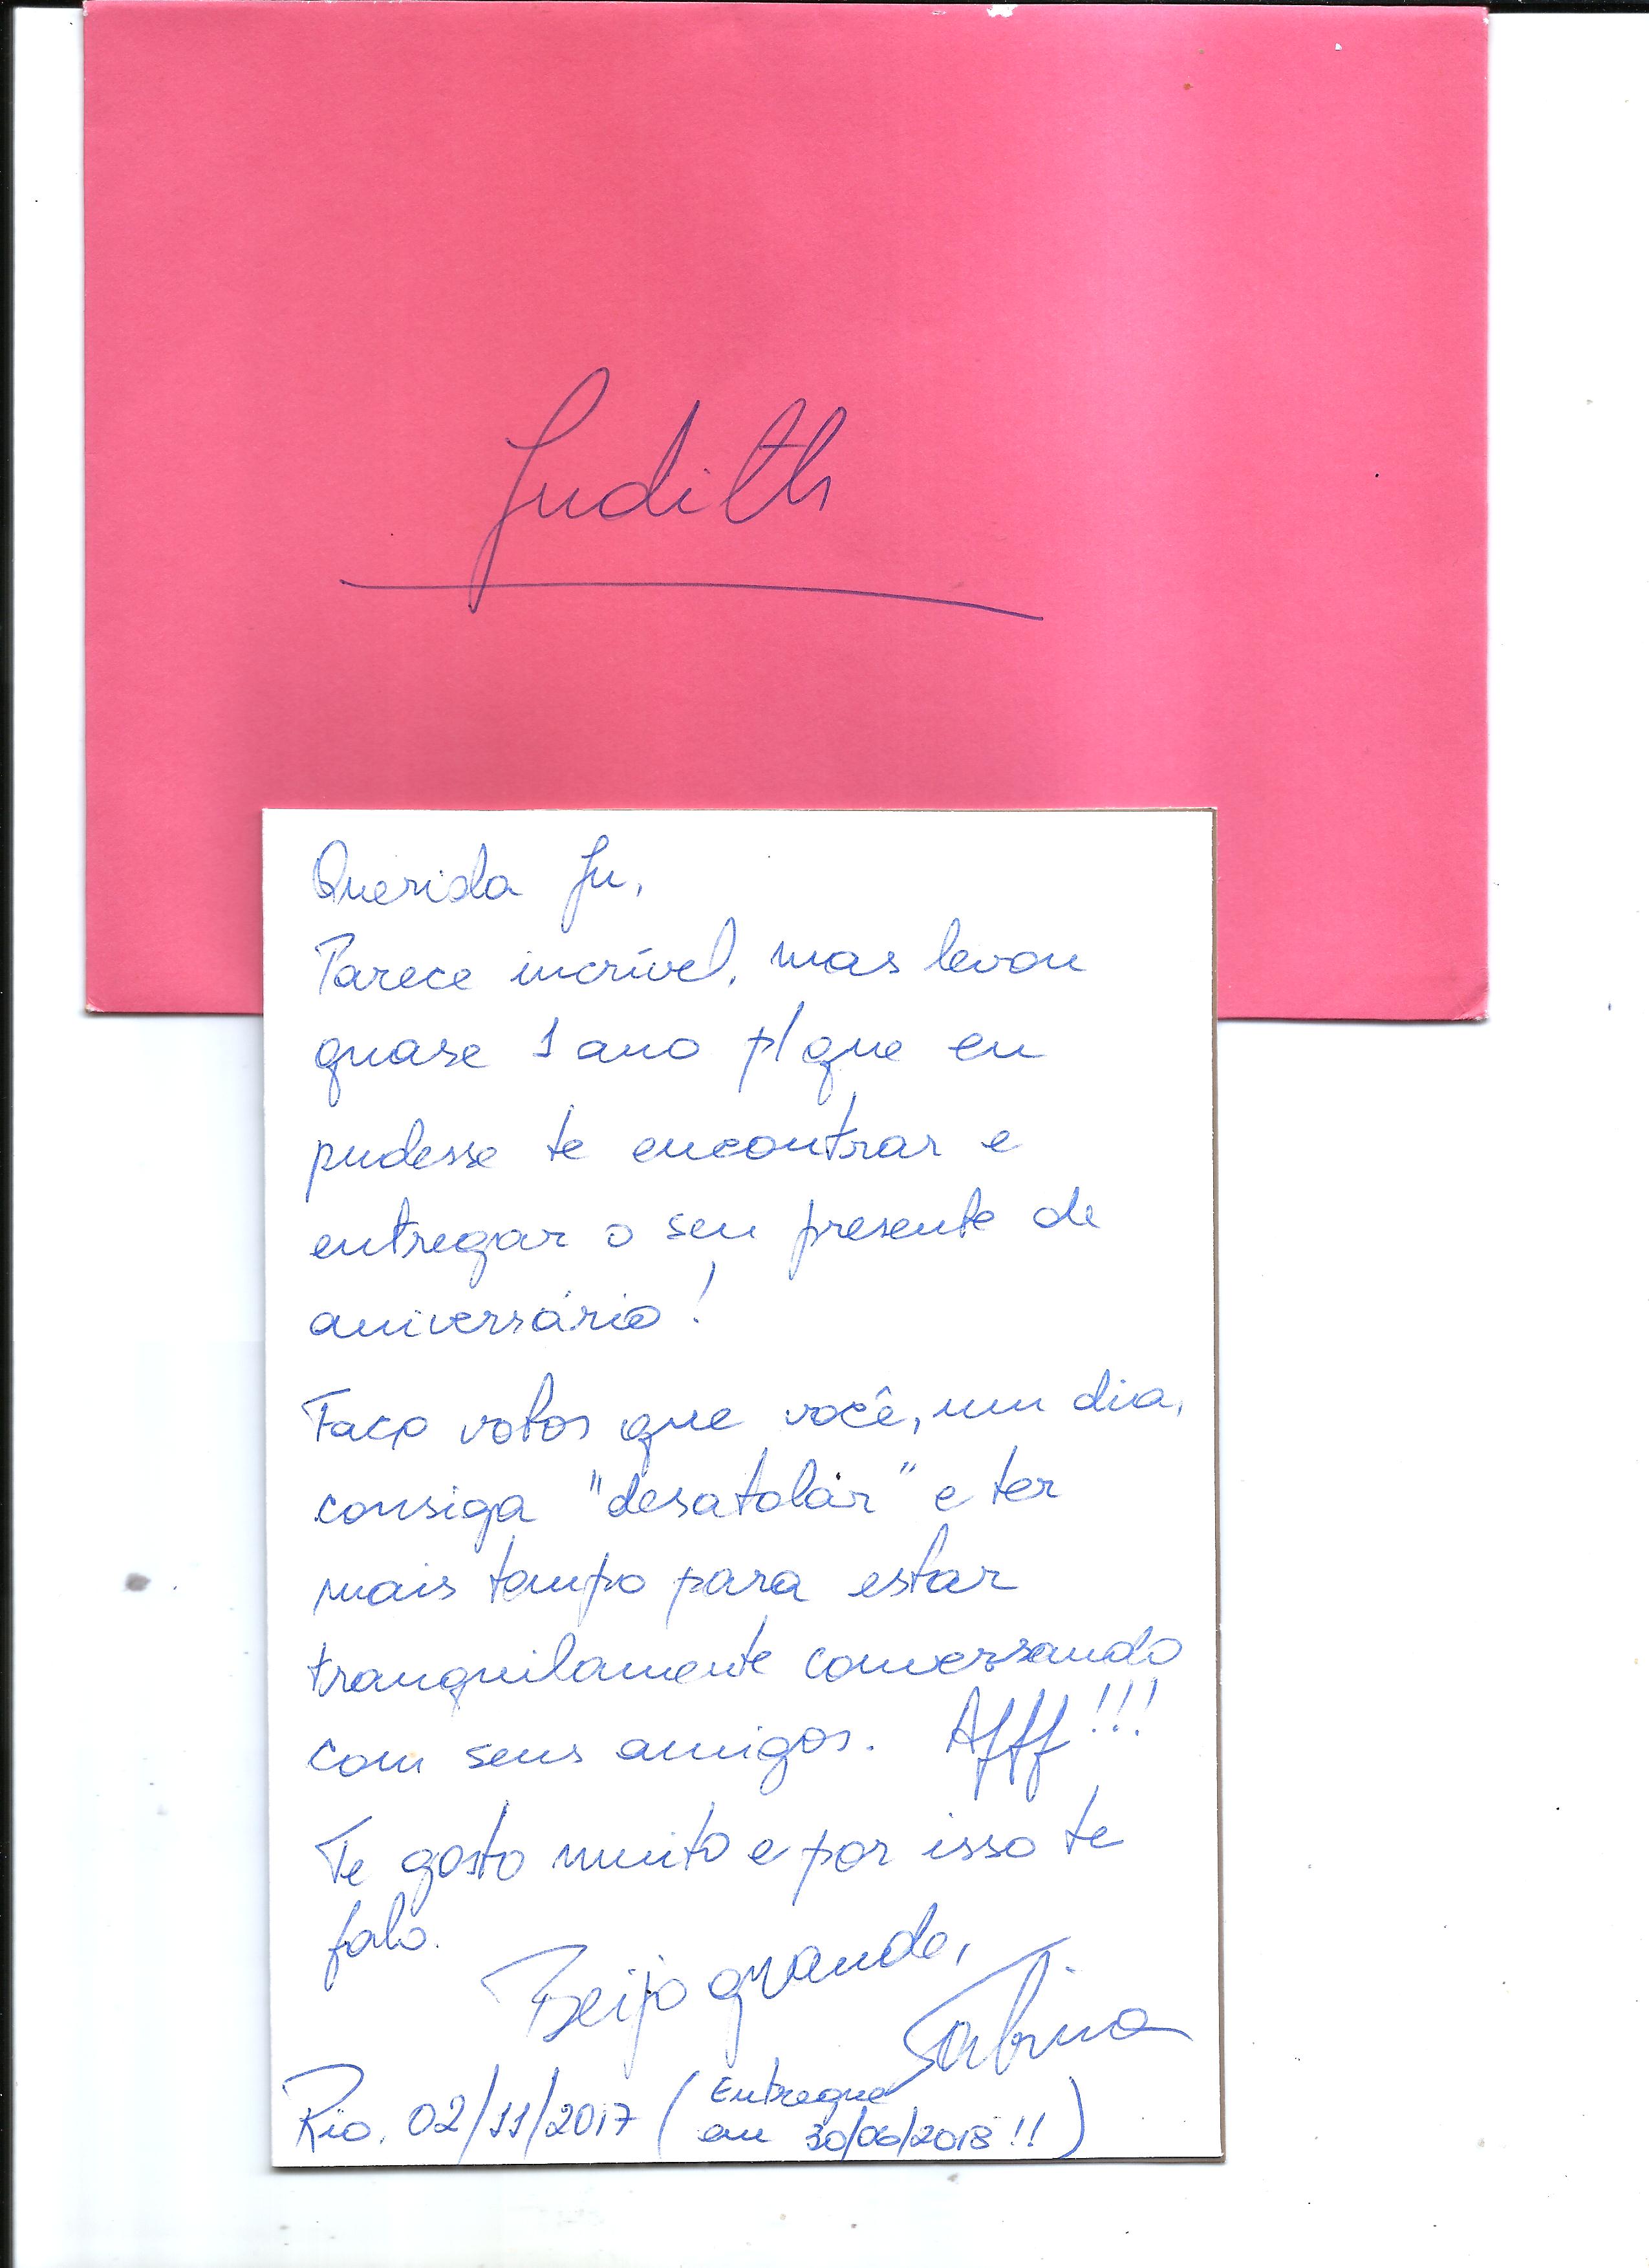 Judith
Querida Ju,
Parece incrível, mas levou
quase 1 ano p/ que eu
pudesse te encontrar e
entregar o seu presente de
aniversário!
Faço votos que você, um dia,
consiga "desatolar" e ter
mais tempo para estar
tranquilamente conversando
com seus amigos. Afff!!!
Te gosto muito e por isso te
falo.
Beijo grande,
Sabrina
Rio, 02/11/2017 (Entregue
em 30/06/2018!!)